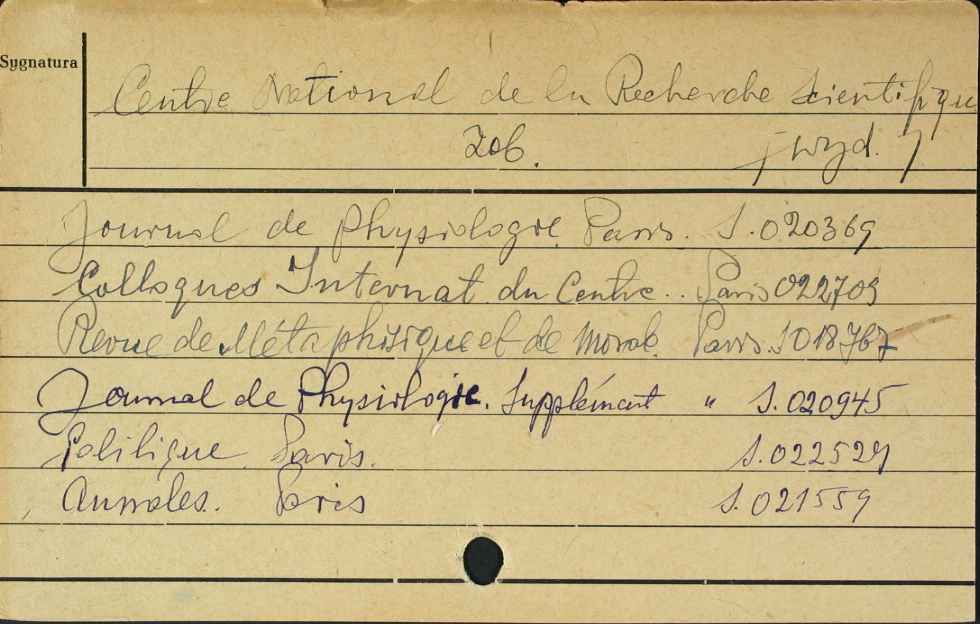 Sygnatura
Centre National de la Recherche Scientifique
Zob. / wyd. /
Journal de Physiologie Paris. S.020369
Colloques Internat. du Centre.. Paris 022709
Revue de Métaphisique et de Morale. Paris. S018767
Journal de Physiologie. Supplément " S.020945
Politique Paris. S.022529
Annales. Paris S.021559